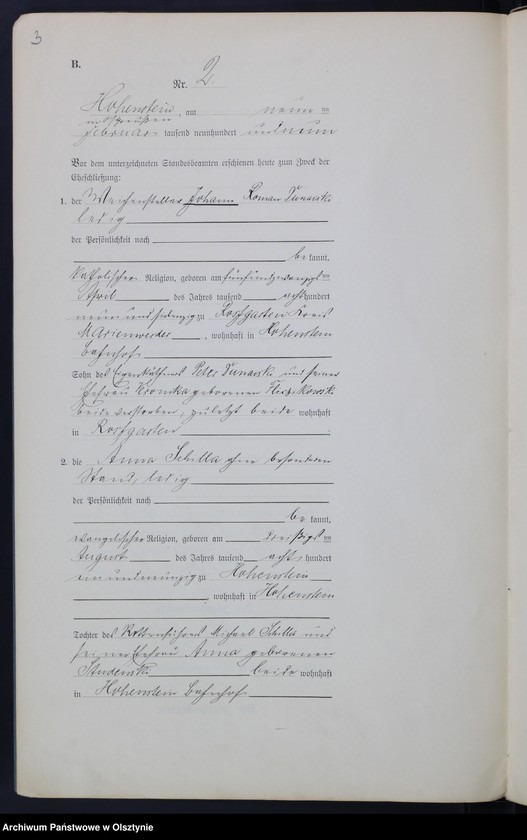 3
B.
Nr. 2
Hohenstein, am neun ten
in Ostpreußen
Februar tausend neunhundert und neun
Vor dem unterzeichneten Standesbeamten erschienen heute zum Zweck der
Eheschließung:
1. der Weichensteller Johann Roman
ledig
der Persönlichkeit nach
be kannt,
katholischer Religion, geboren am fünfundzwanzigsten
April des Jahres tausend acht hundert
neunundsiebzig zu Roßgarten Kreis
Marienwerder, wohnhaft in Hohenstein
Bahnhof
Sohn des Eigenkäthners Peter und seiner
Ehefrau geborenen
beide verstorben, zuletzt beide wohnhaft
in Roßgarten
2. die Anna Schilla ohne besonderen
Stand, ledig
der Persönlichkeit nach
be kannt,
evangelischer Religion, geboren am dreißigsten
August des Jahres tausend acht hundert
einundneunzig zu Hohenstein
, wohnhaft in Hohenstein
Tochter des Rottenführers Michael Schilla und
seiner Ehefrau Anna geborenen
beide wohnhaft
in Hohenstein Bahnhof
Archiwum Państwowe w Olsztynie